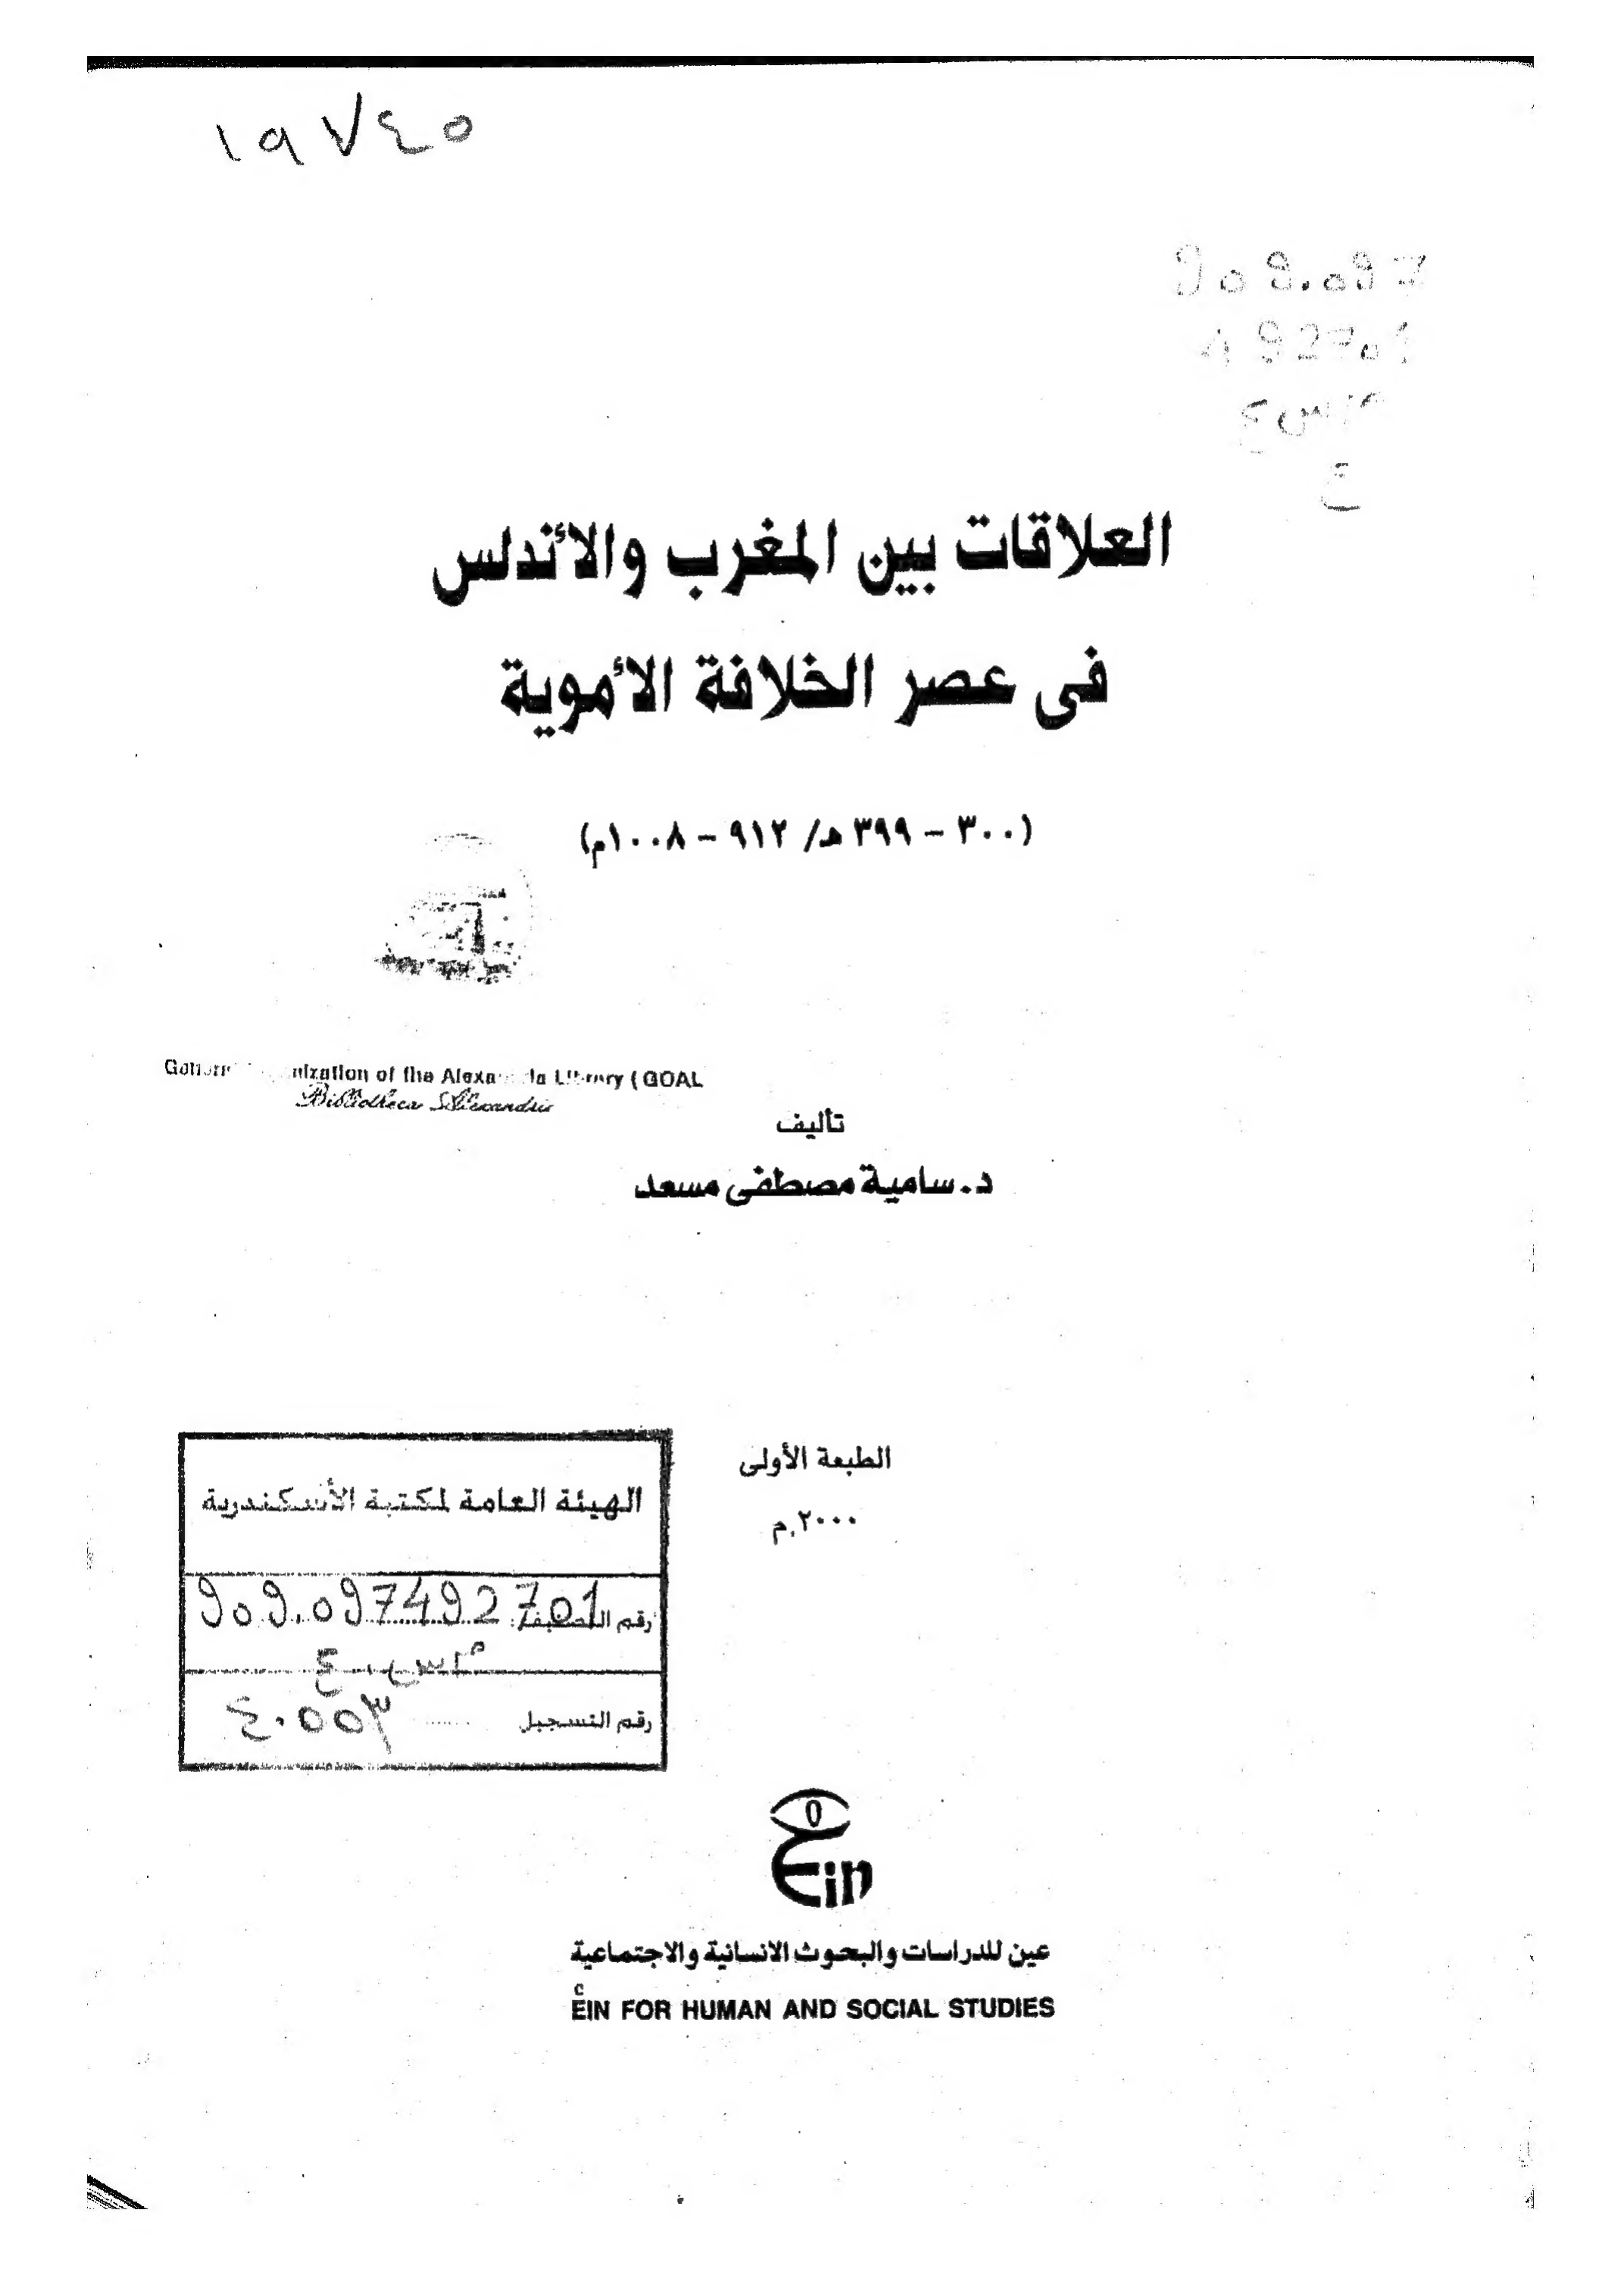 ١٩٧٤٥
909.097
492701
ع
العلاقات بين المغرب والأندلس
فى عصر الخلافة الأموية
(٣٠٠ – ٣٩٩ هـ/ ٩١٢ – ١٠٠٨م)
of the Library (GOAL
Bibliotheca Alexandria
تأليف
د. سامية مصطفى مسعد
الطبعة الأولى
٢٠٠٠م
الهيئة العامة لمكتبة الأسكندرية
رقم 909.097492701
رقم التسجيل ٤٠٥٥٣
Ein
عين للدراسات والبحوث الانسانية والاجتماعية
EIN FOR HUMAN AND SOCIAL STUDIES